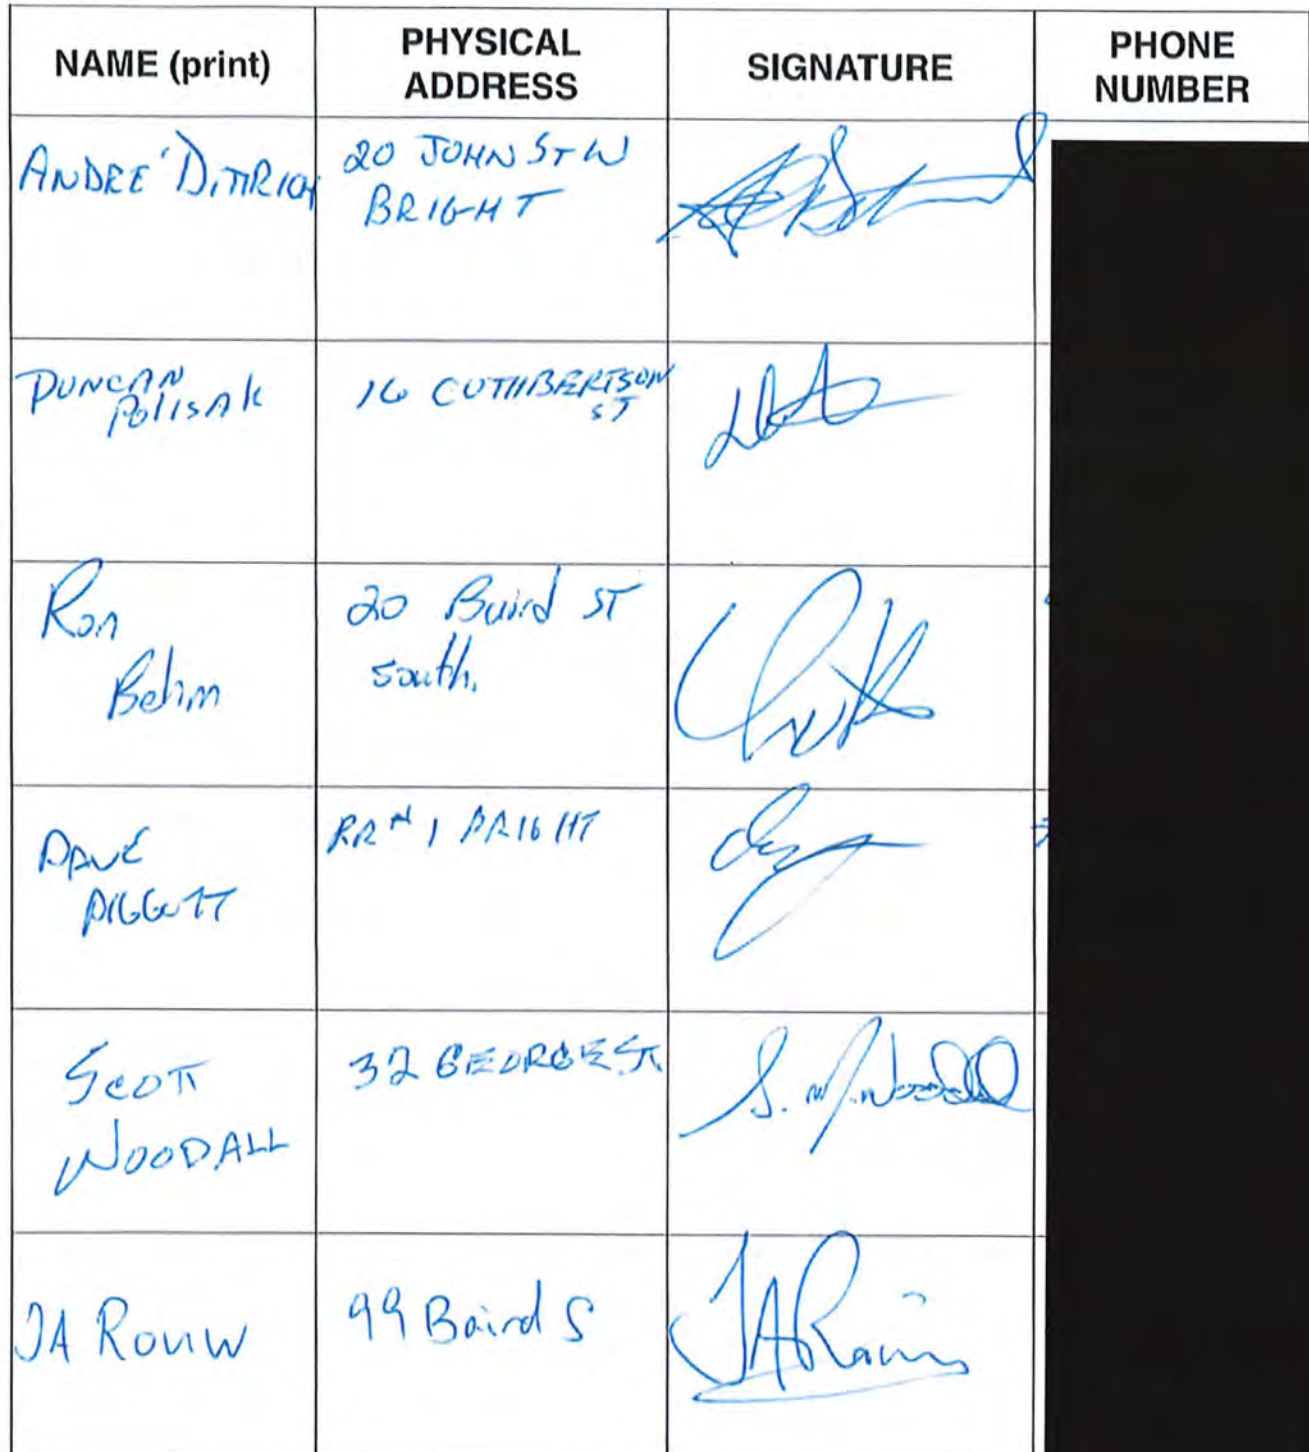 NAME (print)
PHYSICAL
ADDRESS
SIGNATURE
PHONE
NUMBER
ANDRE'
20 JOHN ST W
BRIGHT
DUNCAN
Polisak
16 CUTHBERTSON
ST
Ron
Behm
20 Baird ST
south.
DAVE
PIGGOTT
RR # 1 BRIGHT
SCOTT
WOODALL
32 GEORGE ST.
S. M. Woodall
JA Rouw
99 Baird S